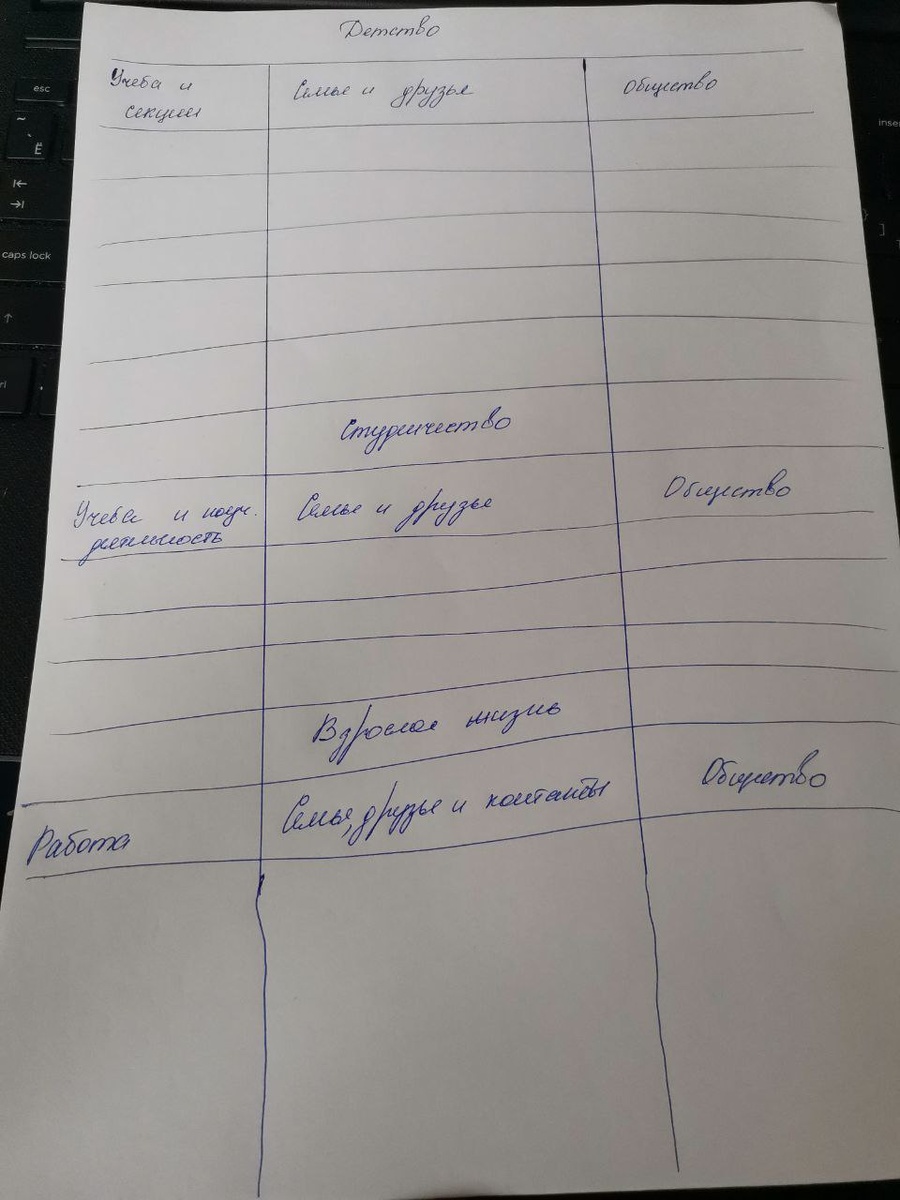 Детство
Учеба и
секции
Семья и друзья
Общество
Студенчество
Учеба и научн.
деятельность
Семья и друзья
Общество
Взрослая жизнь
Работа
Семья, друзья и контакты
Общество
esc
~
`
Ё
caps lock
inser
]